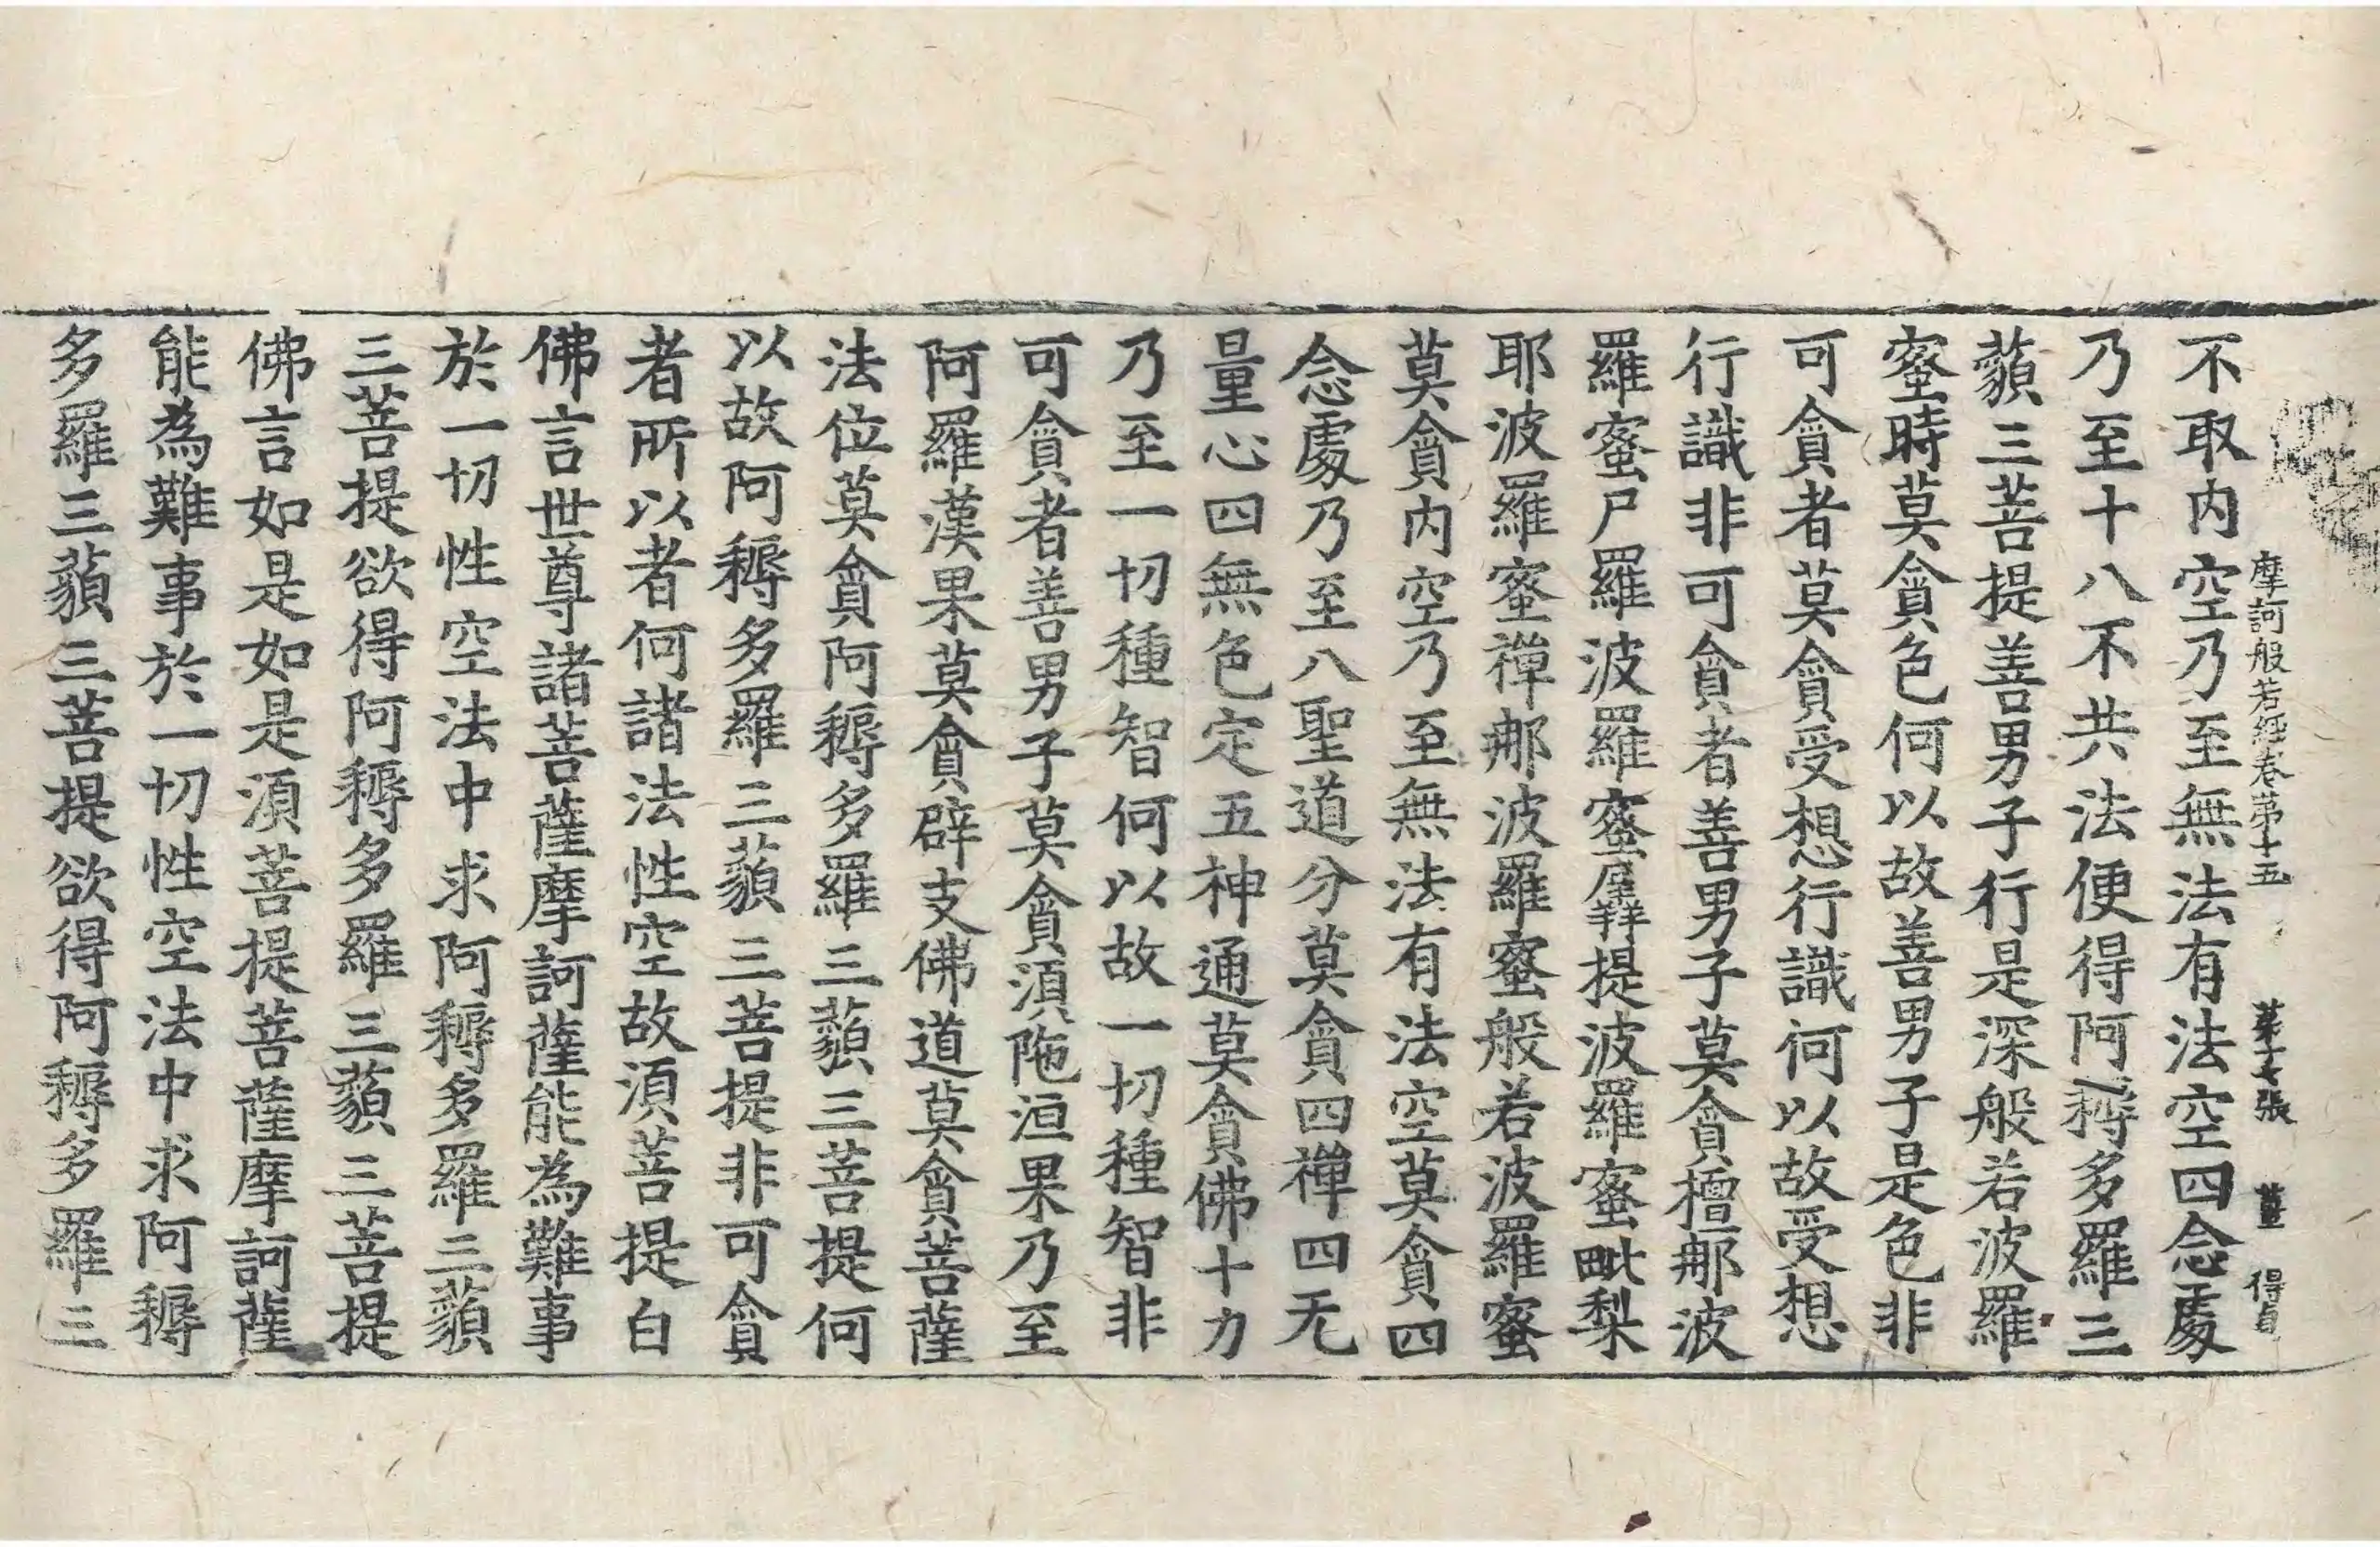 摩訶般若經卷第十五 第十七張 薑 得自
不取内空乃至無法有法空四念處
乃至十八不共法便得阿耨多羅三
藐三菩提善男子行是深般若波羅
蜜時莫貪色何以故善男子是色非
可貪者莫貪受想行識何以故受想
行識非可貪者善男子莫貪檀那波
羅蜜尸羅波羅蜜羼提波羅蜜毗梨
耶波羅蜜禪那波羅蜜般若波羅蜜
莫貪内空乃至無法有法空莫貪四
念處乃至八聖道分莫貪四禪四无
量心四無色定五神通莫貪佛十力
乃至一切種智何以故一切種智非
可貪者善男子莫貪湏陁洹果乃至
阿羅漢果莫貪辟支佛道莫貪菩薩
法位莫貪阿耨多羅三藐三菩提何
以故阿耨多羅三藐三菩提非可貪
者所以者何諸法性空故湏菩提白
佛言世尊諸菩薩摩訶薩能為難事
於一切性空法中求阿耨多羅三藐
三菩提欲得阿耨多羅三藐三菩提
佛言如是如是湏菩提菩薩摩訶薩
能為難事於一切性空法中求阿耨
多羅三藐三菩提欲得阿耨多羅三